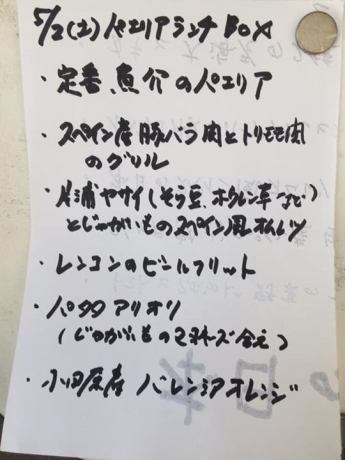 5/2(土)パエリアランチBOX
・定番、魚介のパエリア
・スペイン産豚バラ肉とトリモモ肉
のグリル
・片浦ヤサイ(そら豆、ホウレン草など)
とじゃがいものスペイン風オムレツ
・レンコンのビールフリット
・パタタ アリオリ
(じゃがいものマヨネーズ合え)
・小田原産 バレンシアオレンジ